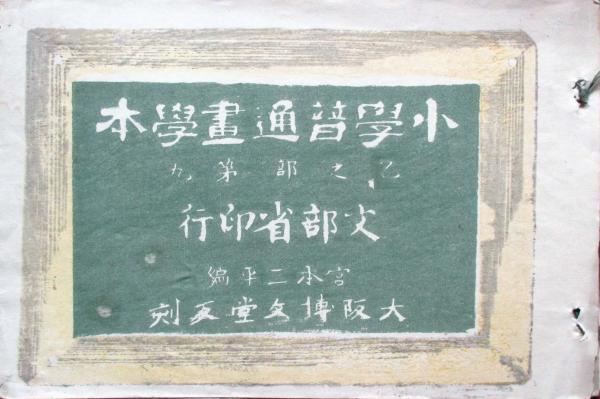 小學普通畫學本
乙之部第九
文部省印行
宮本三平編
大阪博文堂反刻